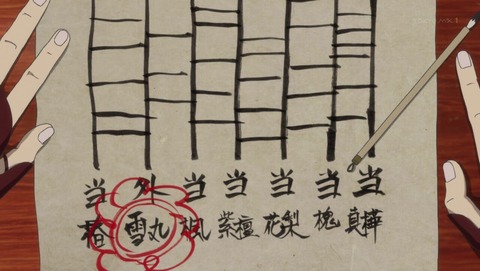 当 外 当 当 当 当 当
椿 雪丸 楓 紫檀 花梨 槐 真樺